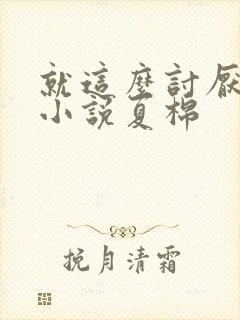 就這麼討厭
小說夏棉
挽月清霜